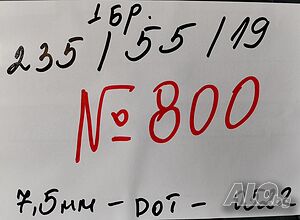 1 БР.
235 / 55 / 19
№ 800
7,5мм - DOT -